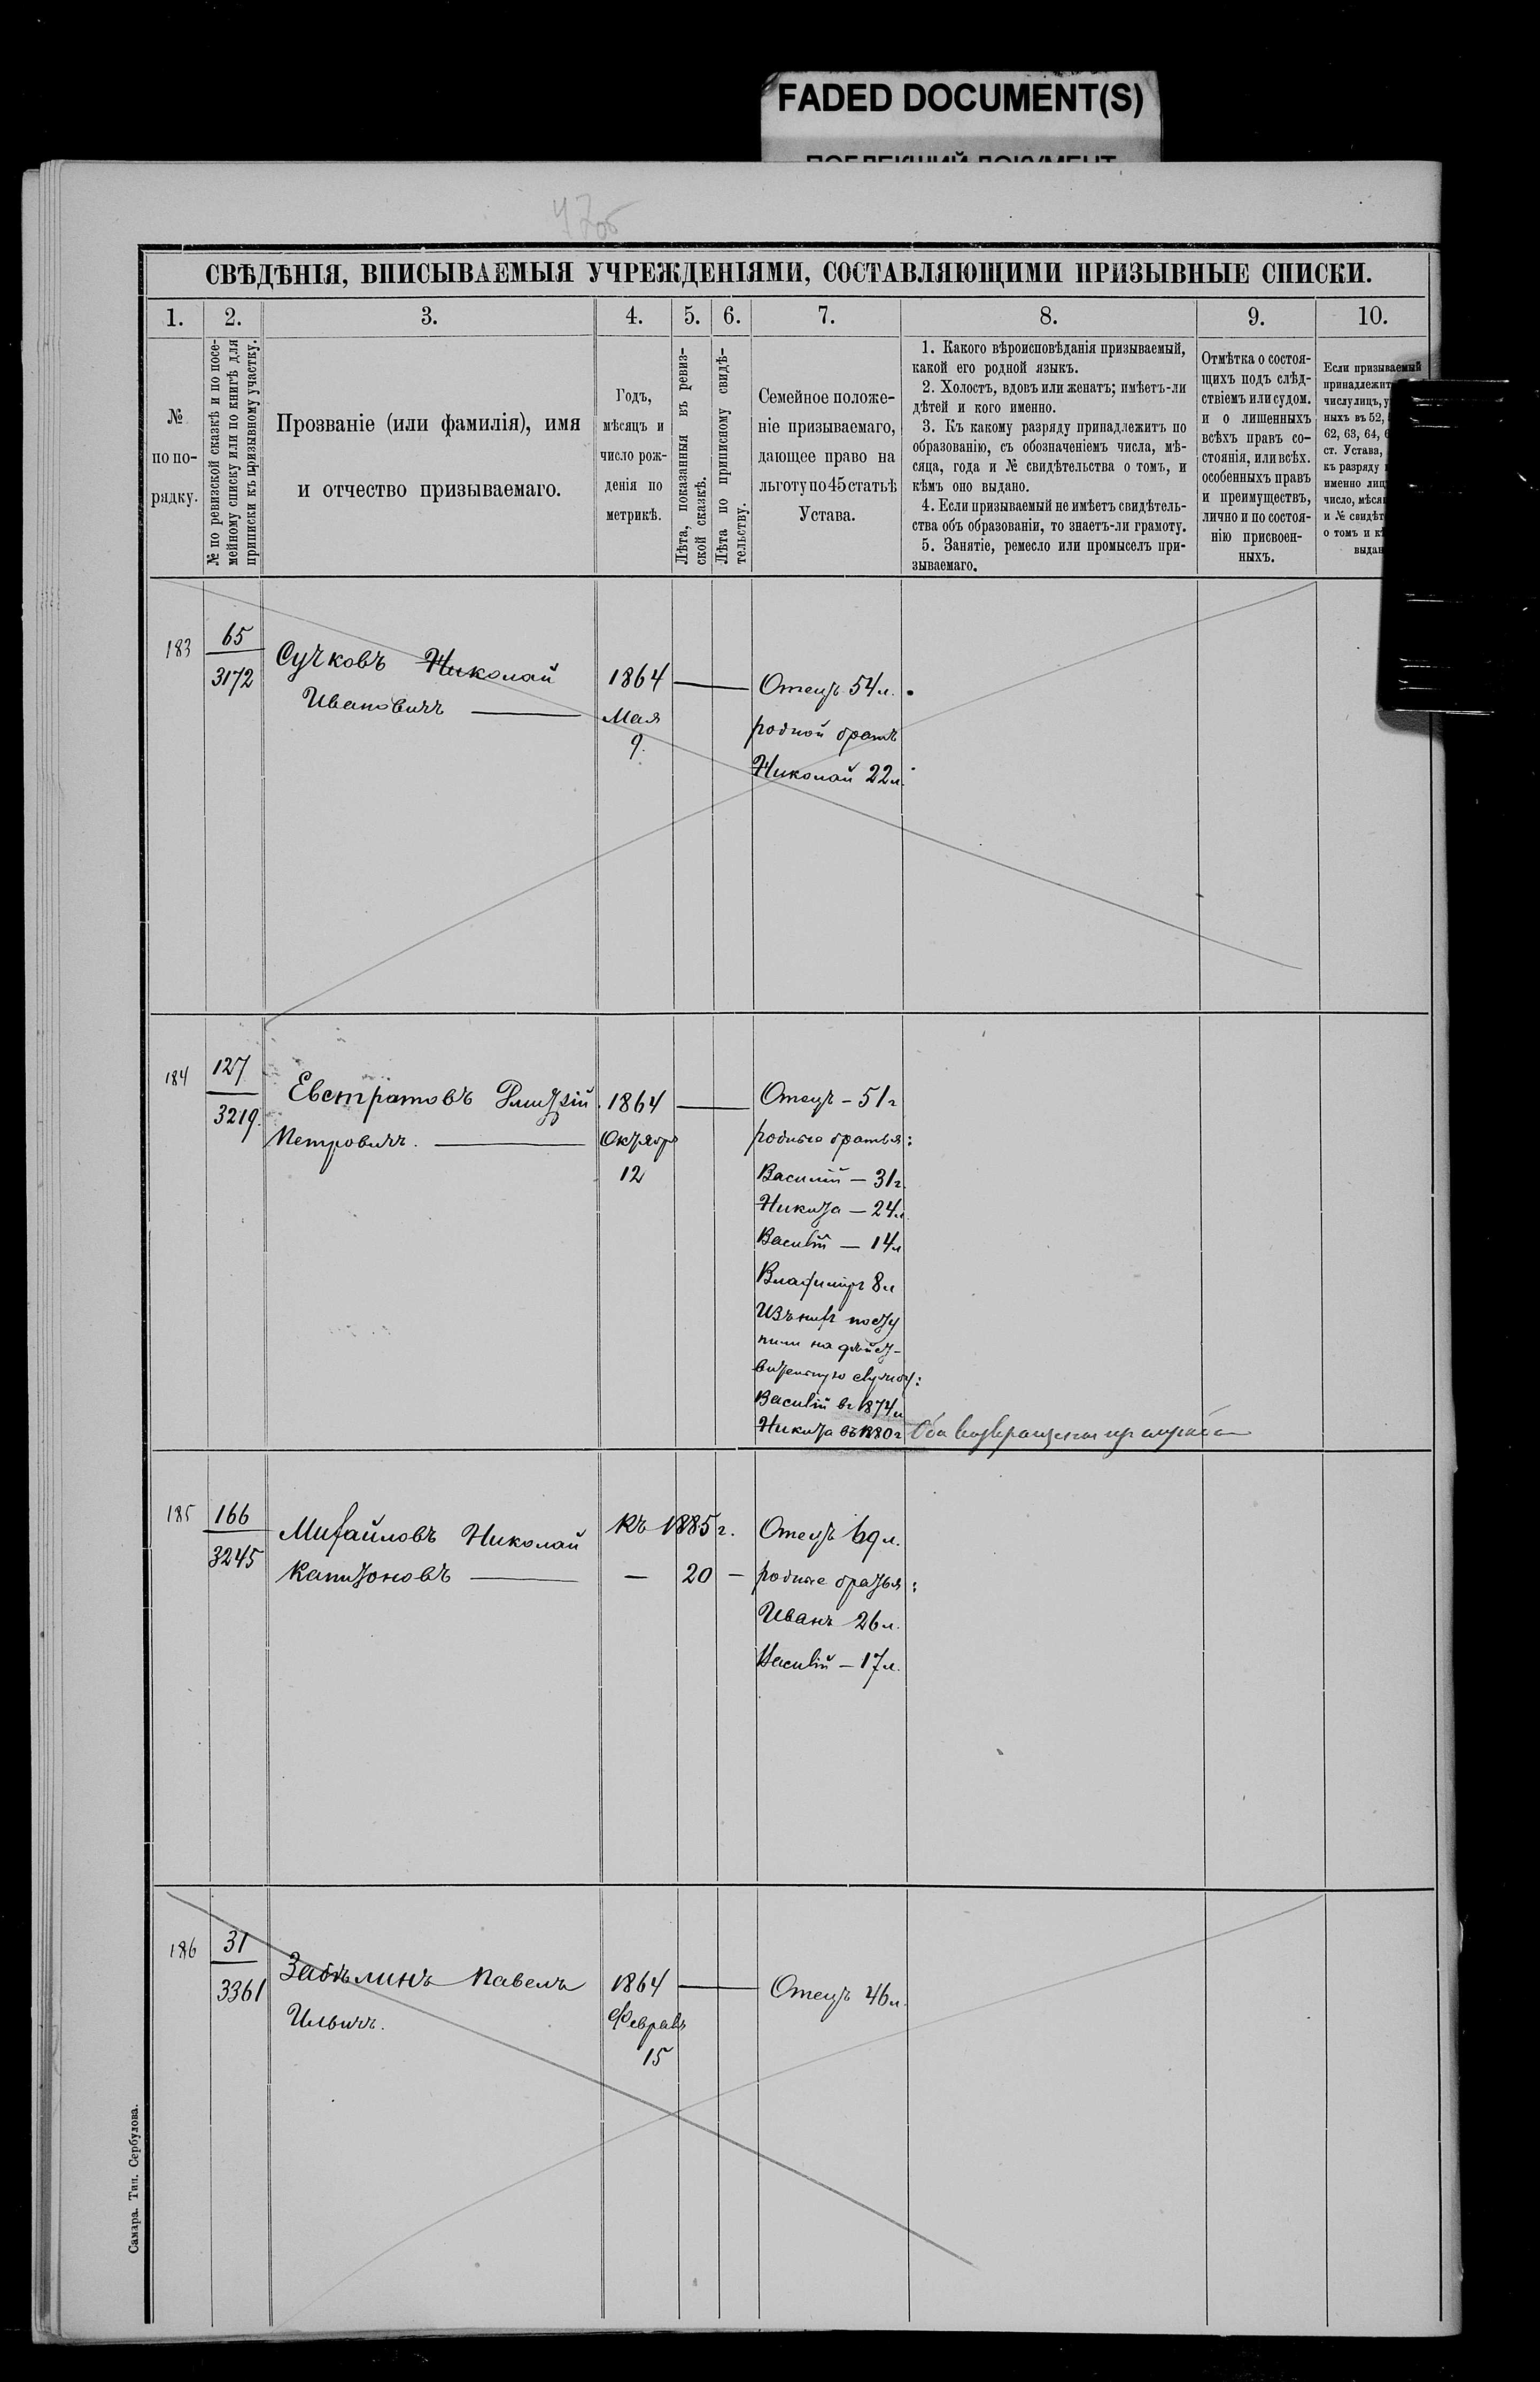 FADED DOCUMENT(S)
ПОБЛЕКШИЙ ДОКУМЕНТ
47об
СВѢДѢНІЯ, ВПИСЫВАЕМЫЯ УЧРЕЖДЕНІЯМИ, СОСТАВЛЯЮЩИМИ ПРИЗЫВНЫЕ СПИСКИ.
1. 2. 3. 4. 5. 6. 7. 8. 9. 10.
№
по по-
рядку.
№ по ревизской сказкѣ и по посе-
мейному списку или по книгѣ для
приписки къ призывному участку.
Прозваніе (или фамилія), имя
и отчество призываемаго.
Годъ,
мѣсяцъ и
число рож-
денія по
метрикѣ.
Лѣта, показанныя въ ревиз-
ской сказкѣ.
Лѣта по приписному свидѣ-
тельству.
Семейное положе-
ніе призываемаго,
дающее право на
льготу по 45 статьѣ
Устава.
1. Какого вѣроисповѣданія призываемый,
какой его родной языкъ.
2. Холостъ, вдовъ или женатъ; имѣетъ-ли
дѣтей и кого именно.
3. Къ какому разряду принадлежитъ по
образованію, съ обозначеніемъ числа, мѣ-
сяца, года и № свидѣтельства о томъ, и
кѣмъ оно выдано.
4. Если призываемый не имѣетъ свидѣтель-
ства объ образованіи, то знаетъ-ли грамоту.
5. Занятіе, ремесло или промыселъ при-
зываемаго.
Отмѣтка о состоя-
щихъ подъ слѣд-
ствіемъ или судом.
и о лишенныхъ
всѣхъ правъ со-
стоянія, или всѣх.
особенныхъ правъ
и преимуществъ,
лично и по состоя-
нію присвоен-
ныхъ.
Если призываемый
принадлежит
числу лицъ, у
ныхъ въ 52,
62, 63, 64,
ст. Устава,
къ разряду
именно лиц
число, мѣся
и № свидѣт
о томъ и к
выдан
183
65
3172
Сучковъ Николай
Ивановичъ
1864
Мая
9.
Отецъ 54 л.
родной братъ
Николай 22 л.
184
127
3219.
Евстратовъ
Петровичъ.
1864
Октябр
12
Отецъ – 51 г
родные братья:
Василій – 31 г.
Никита – 24 л
Василій – 14 л
Владиміръ 8 л
Изъ нихъ посту
пили на дѣйст-
вительную службу:
Василій въ 1874 г
Никита въ 1880 г
Оба возвратились
185
166
3245
Михайловъ Николай
Капитоновъ
Къ 1885 г.
– 20 –
Отецъ 69 л.
родные братья:
Иванъ 26 л.
Василій – 17 л.
186
31
3361
Забѣлинъ Павелъ
Ильичъ.
1864
Февраль
15
Отецъ 46 л.
Самара. Тип. Сербулова.